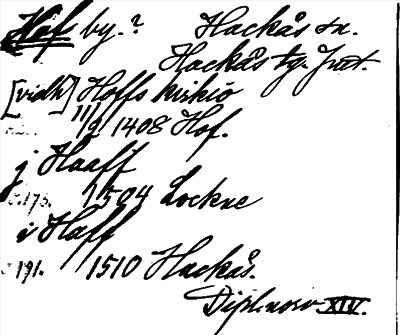 Hof by.? Hackås sn.
Hackås tg. Jmt.
[vidh] Hoffs kirkio
11/9 1408 Hof.
j Haaff
s. 173. 1504 Lockne
i Haff
s. 191. 1510 Hackås.
Dipl. norv XIV.